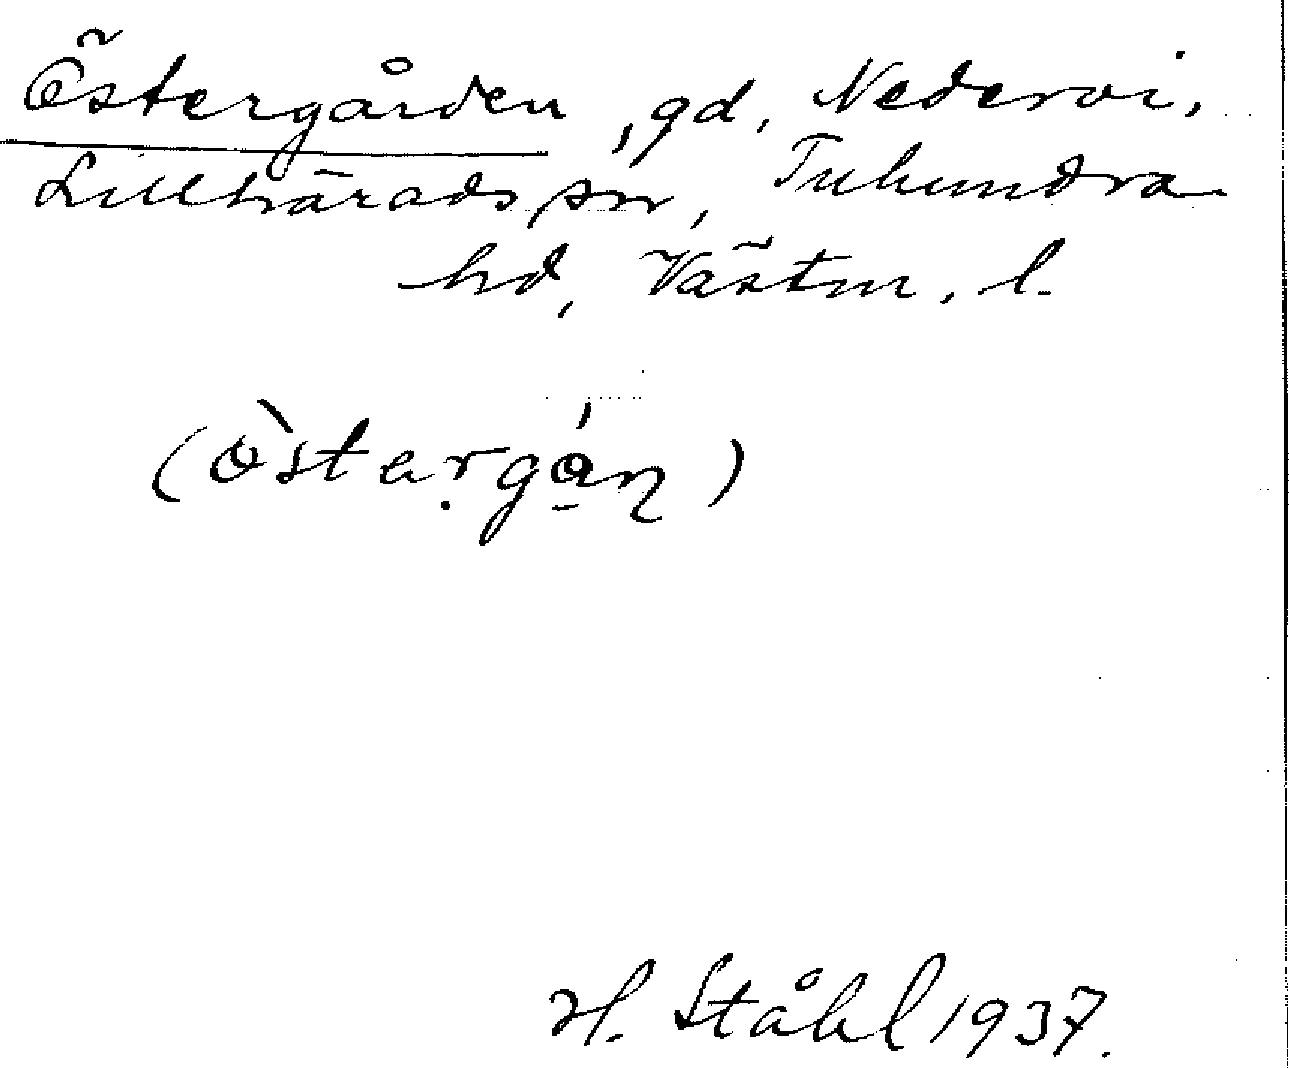 Östergården, gd, Nedervi,
Lillhärads sn, Tuhundra
hd, Västm. l.
(òstargá̱ɳ)
H. Ståhl 1937.